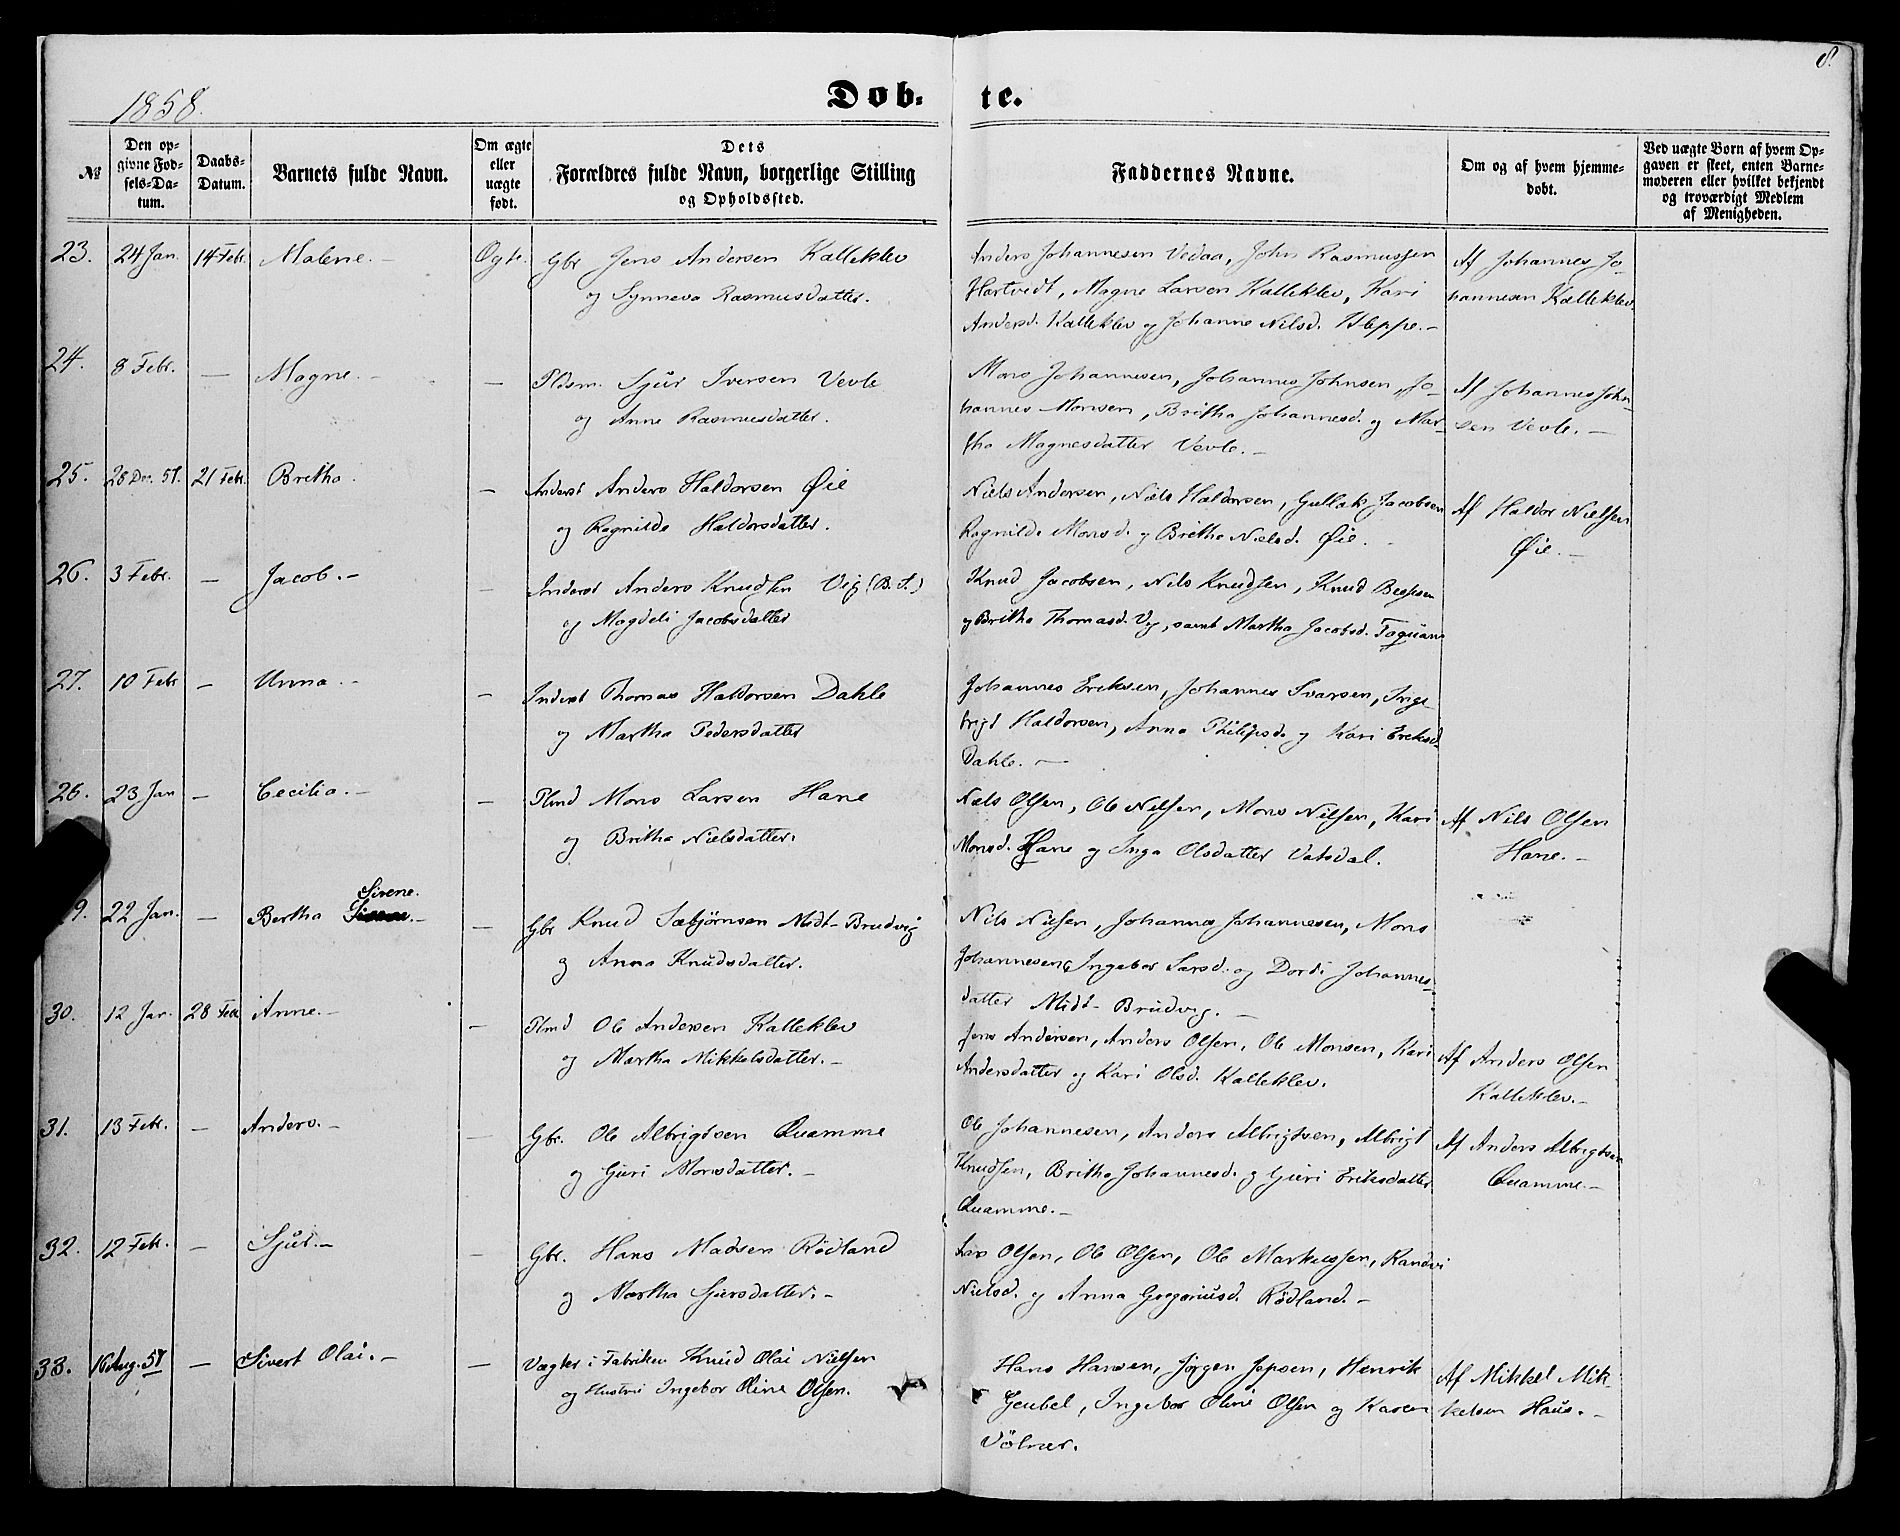 8.
1858.
Døb- te.
№
Den op-
givne Fød-
sels-Da-
tum.
Daabs-
Datum.
Barnets fulde Navn.
Om ægte
eller
uægte
født.
Dets
Forældres fulde Navn, borgerlige Stilling
og Opholdssted.
Faddernes Navne.
Om og af hvem hjemme-
døbt.
Ved uægte Børn af hvem Op-
gaven er skeet, enten Barne-
moderen eller hvilket bekjendt
og troværdigt Medlem
af Menigheden.
23. 24 Jan. 14 Febr. Malene.- Ægte. Gbr Jens Andersen Kalleklev
og Synneva Rasmusdatter.
Anders Johannesen Vedaa, John Rasmussen
Hartvedt, Magne Larsen Kalleklev, Kari
Andersd. Kalleklev og Johanne Nilsd. Kleppe.-
Af Johannes Jo-
hannesen Kalleklev.
24. 8 Febr. — Magne.- — Pldsm. Sjur Iversen Vevle
og Anne Rasmusdatter.
Mons Johannesen, Johannes Johnsen, Jo-
hannes Monsen, Britha Johannesd. og Mar-
tha Magnesdatter Vevle.-
Af Johannes John-
sen Vevle.-
25. 28 Dec. 57. 21 Febr. Britha. — Inderst Anders Haldorsen Øie
og Ragnilde Haldorsdatter.
Niels Andersen, Niels Haldorsen, Gullak Jacobsen
Ragnilde Monsd. og Britha Nielsd. Øie.
Af Haldor Nielsen
Øie.-
26. 3 Febr. — Jacob.- — Inderst Anders Knudsen Vig (B. S.)
og Magdeli Jacobsdatter
Knud Jacobsen, Nils Knudsen, Knud
og Britha Thomasd. Vig, samt Martha Jacobsd.
27. 10 Febr — Unna.- — Inderst Thomas Haldorsen Dahle
og Martha Pedersdatter
Johannes Eriksen, Johannes Ivarsen, Inge-
brigt Haldorsen, Anna Philipsd. og Kari Eriksd.
Dahle.-
26. 23 Jan — Cecilia.- — Plmd Mons Larsen Hane
og Britha Nielsdatter.
Niels Olsen, Ole Nilsen, Mons Nilsen, Kari
Monsd. Hane og Inga Olsdatter Vatsdal.
Af Nils Olsen
Hane.-
Sirene.
9. 22 Jan. — Bertha — Gbr Knud Sæbjørnsen Midt-Brudvig
og Anna Knudsdatter.
Nils Nilsen, Johannes Johannesen, Mons
Johannesen, Ingebor Larsd. og Dordi Johannes-
datter Midt-Brudvig.-
30. 12 Jan. 28 Febr Anne.- — Plmd Ole Andersen Kalleklev
og Martha Mikkelsdatter.-
Jens Andersen, Anders Olsen, Ole Monsen, Kari
Andersdatter og Kari Olsd. Kalleklev.
Af Anders Olsen
Kalleklev.-
31. 13 Febr. — Anders.- — Gbr. Ole Albrigtsen Quamme
og Guri Monsdatter.-
Ole Johannesen, Anders Albrigtsen, Albrigt
Knudsen, Britha Johannesd. og Guri Eriksdatter
Quamme.-
Af Anders Albrigtsen
Quamme.-
32. 12 Febr. — Sjur.- — Gbr. Hans Madsen Rødland
og Martha Sjursdatter.-
Lars Olsen, Ole Olsen, Ole Markussen, Randvi
Nielsd. og Anna Gregoriusd. Rødland.-
33. 16 Aug. 57 — Sivert Olai.- — Vægter i Fabriken Knud Olai Nielsen
og Hustru Ingebor Oline Olsen.
Hans Hansen, Jørgen Jepsen, Henrik
Geubel, Ingebor Oline Olsen og Karen
Vølner.
Af Mikkel Mik-
kelsen Haus.-